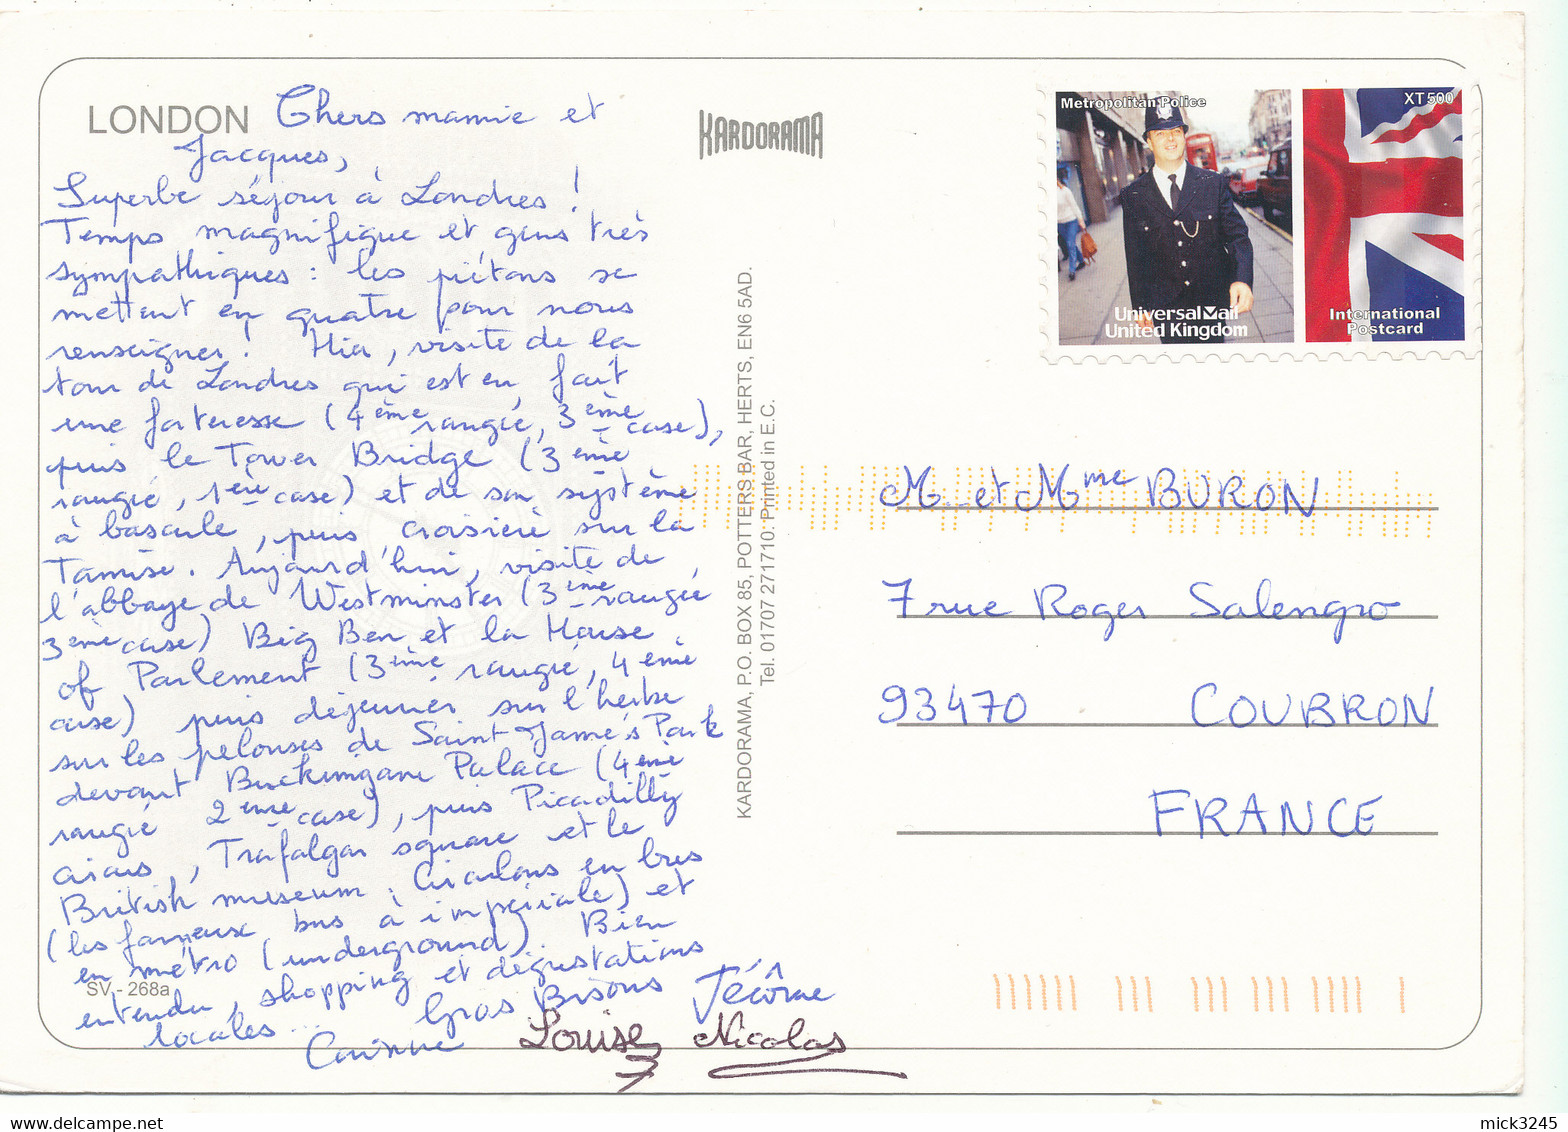 LONDON Chers mamie et
Jacques,
Superbe séjour à Londres !
Temps magnifique et gens très
sympathiques : les piétons se
mettent en quatre pour nous
renseigner ! Hier, visite de la
tour de Londres qui est en fait
une forteresse (4ème rangée, 3ème case),
puis le Tower Bridge (3ème
rangée, 1ère case) et de son système
à bascule, puis croisière sur la
Tamise. Aujourd'hui, visite de
l'abbaye de Westminster (3ème rangée
3ème case) Big Ben et la House
of Parlement (3ème rangée, 4ème
case) puis déjeuner sur l'herbe
sur les pelouses de Saint Jame's Park
devant Buckingam Palace (4ème
rangée 2ème case), puis Picadilly
circus, Trafalgar square et le
British museum. Circulons en bus
(les fameux bus à impériale) et
en métro (underground). Bien
entendu, shopping et dégustations
locales...
Gros Bisous Jérôme
Corinne Louise Nicolas
SV - 268a
KARDORAMA
KARDORAMA, P.O. BOX 85, POTTERS BAR, HERTS, EN6 5AD.
Tel. 01707 271710: Printed in E.C.
Metropolitan Police
Universal Mail
United Kingdom
XT500
International
Postcard
M. et Mme BURON
7 rue Roger Salengro
93470 COUBRON
FRANCE
mick3245